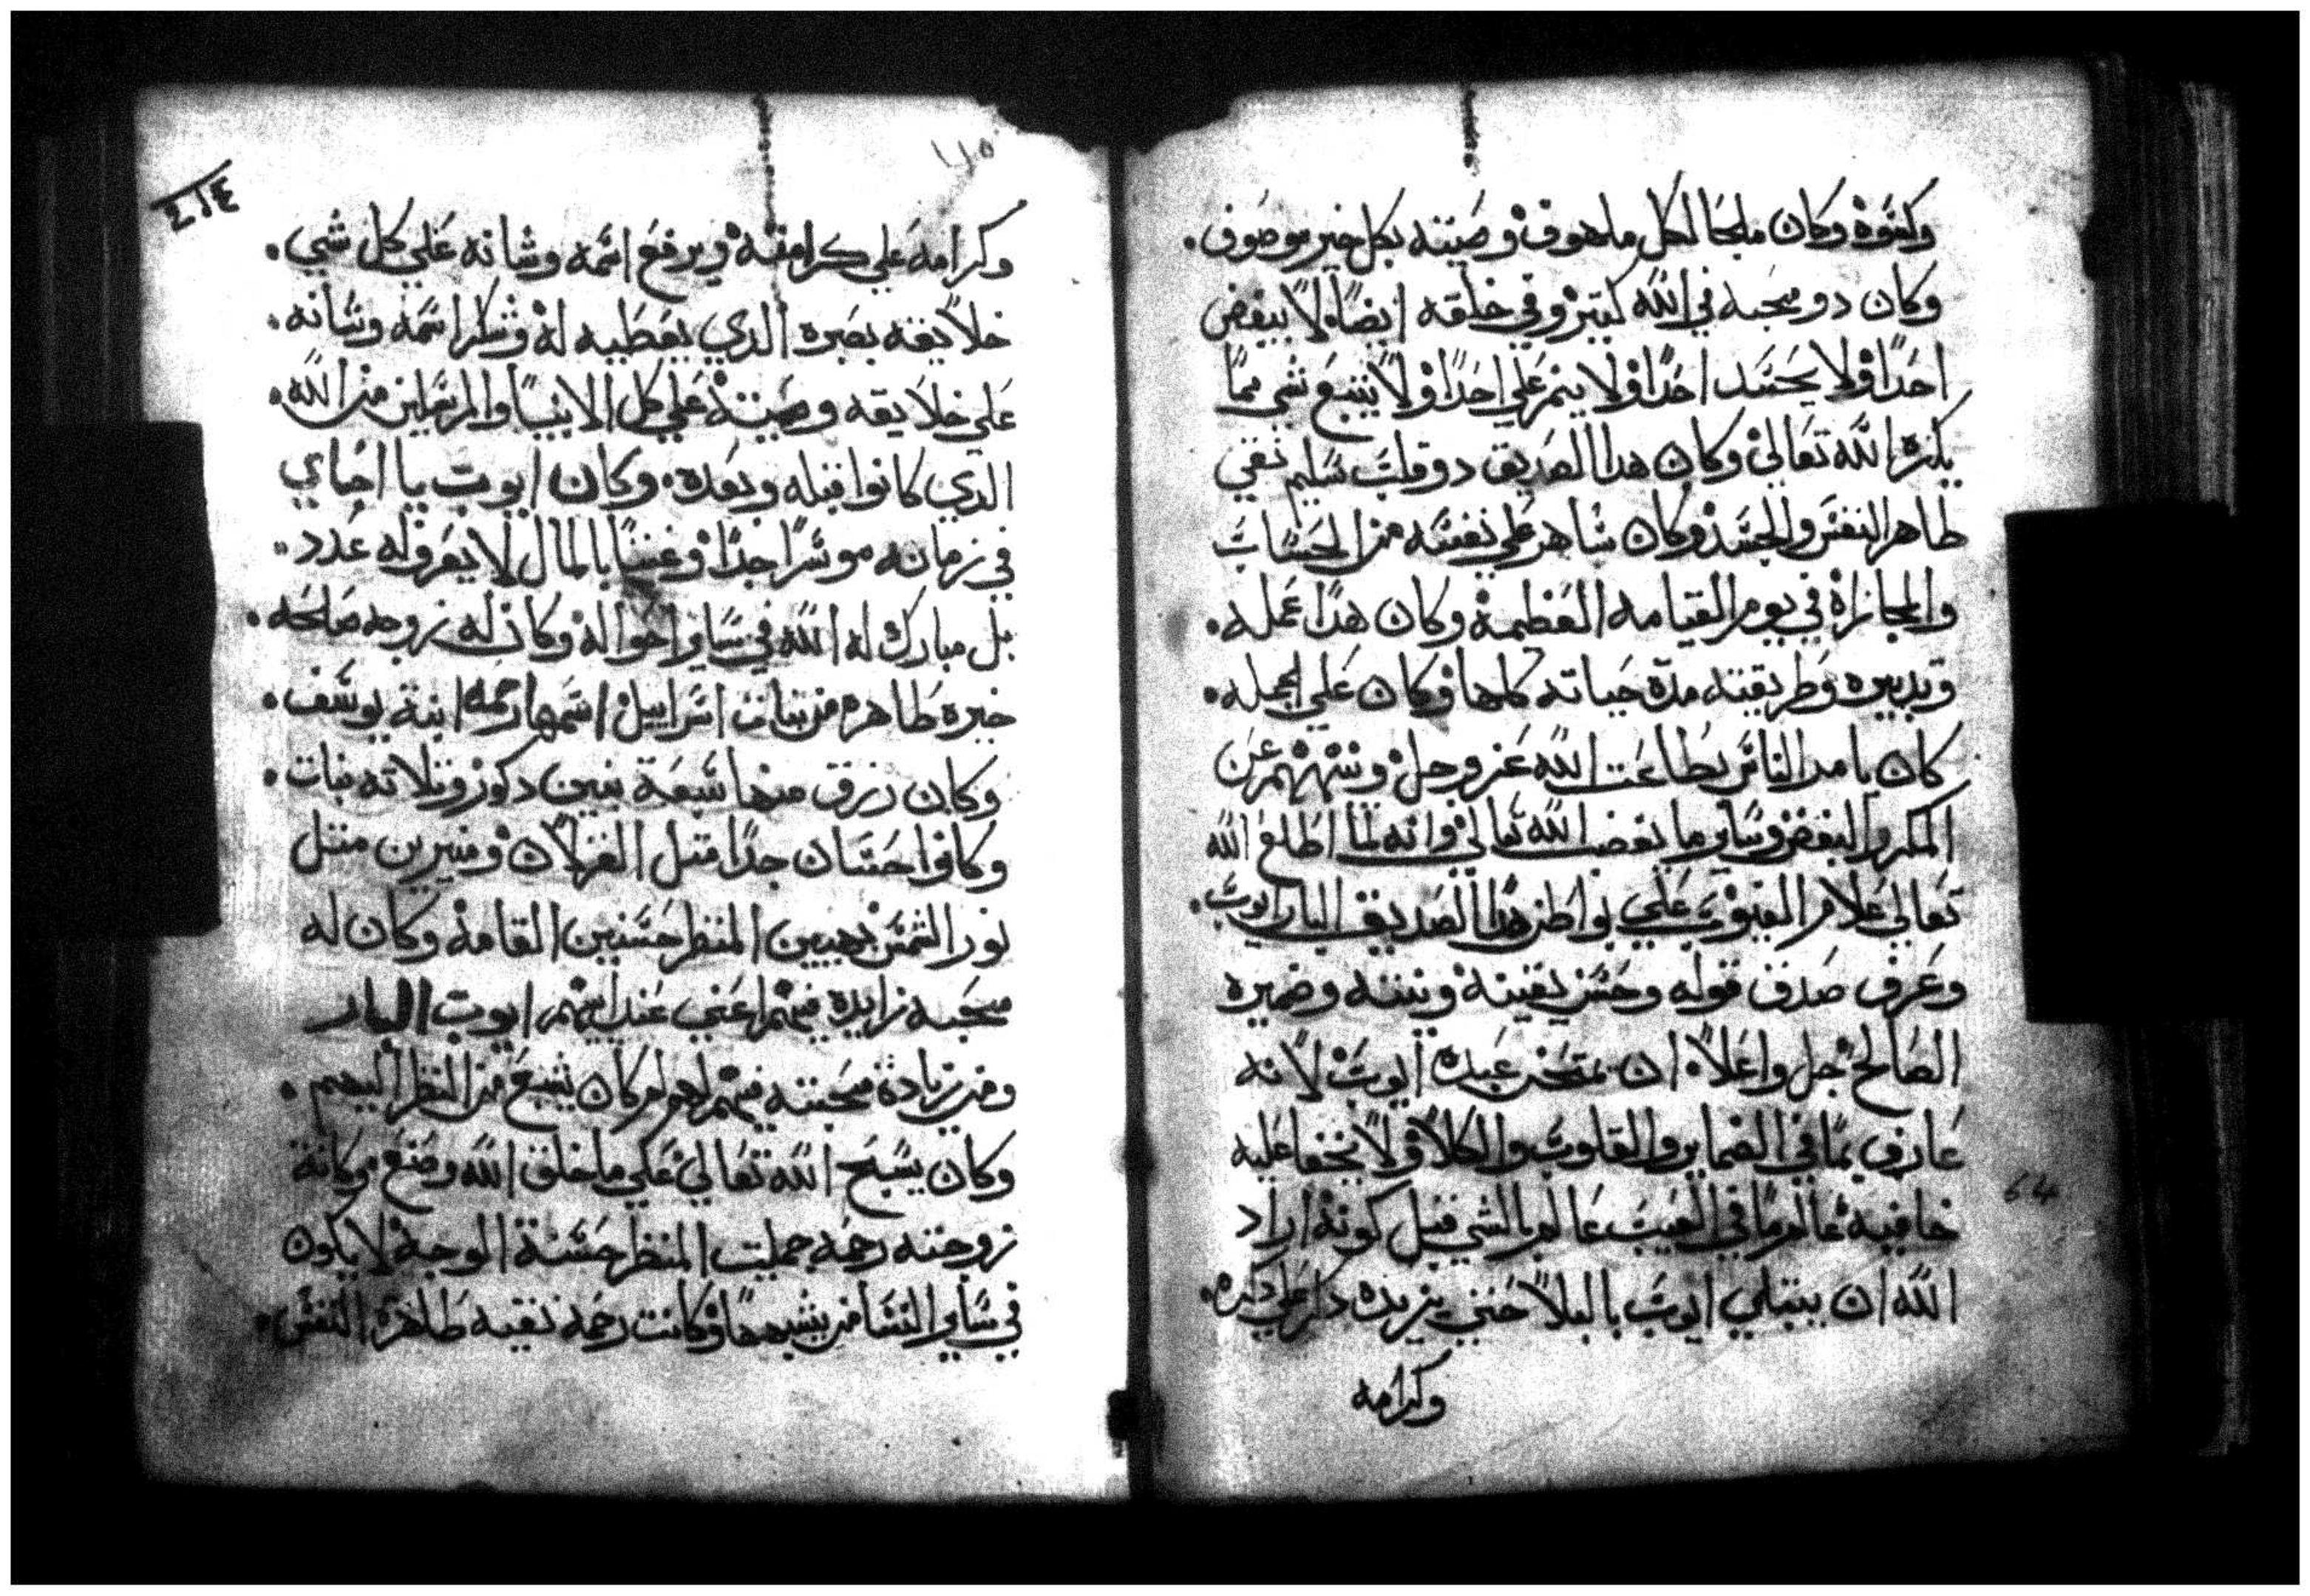 وكسَوة وكان ملجا لكل ملهوف وصيته بكل خير موصوف.
وكان دو محبه في الله كتير وفي خلقه ايضاً لا يبغض
احداً ولا يحسَد احداً ولا ينم علي احداً ولا يتبع شي مما
يكره الله تعالي وكان هدا الصديق دو قلب سليم نقي
طاهر النفسَ والجسَد وكان سَاهر علي نفسَه من الحسَاب
والمجازاة في يوم القيامه العظيمة وكان هدا عمله.
وتدبيره وطريقته مدة حياته كلها وكان علي الجمله.
كان يامر الناسَ بطاعت الله عز وجل وينهيهم عن
المكر والبغض وسَاير ما يغضب الله تعالي وانه لما اطلع الله
تعالي علام الغيوب علي بواطن هدا الصديق البار ايوب.
وعرف صدق قوله وحسَن يقينه ونيته وضميره
الصالح جل واعلا ان يمتحن عبده ايوب لانه
عارف بما في الضماير والقلوب والكلا ولا يخفا عليه
خافيه عالم ما في الغيب عالم بالشي قبل كونه اراد
الله ان يبتلي ايوب بالبلا حتي يزيده دكر علي دكره.
وكرامه
٤١٤
وكرامه علي كرامته ويرفع اسَمه وشانه علي كل شي.
خلايقه بصبره الدي يعطيه له وشكر اسمه وشانه.
علي خلايقه وصيته علي كل الانبيا والمرسَلين من الله.
الدي كانوا قبله وبعده. وكان ايوب يا احباي
في زمانه موسَراً جداً وغنياً بالمال لا يعرف له عدد
بل مبارك له الله في سَاير احواله وكان له زوجه صالحه.
خيره طاهره من بنات اسَراييل اسَمها رحمه ابنة يوسَف.
وكان رزق منها سَبعة بنين دكور وتلاته بنات.
وكانوا حسَان جداً متل الغزلان ومنيرين متل
نور الشمسَ بهيين المنظر حسَنين القامة وكان له
محبه زايده فيهم اعني عند ابيهم ايوب البار
ومن زيادة محبته فيهم لهو لم كان يشبع من النظر اليهم.
وكان يسَبح الله تعالي علي ما خلق الله وصنع وكانة
زوجته رحمه جميلت المنظر حسَنة الوجة لا يكون
في سَاير النسَا من يشبهها وكانت رحمه نقيه طاهرة النفسَ.
64